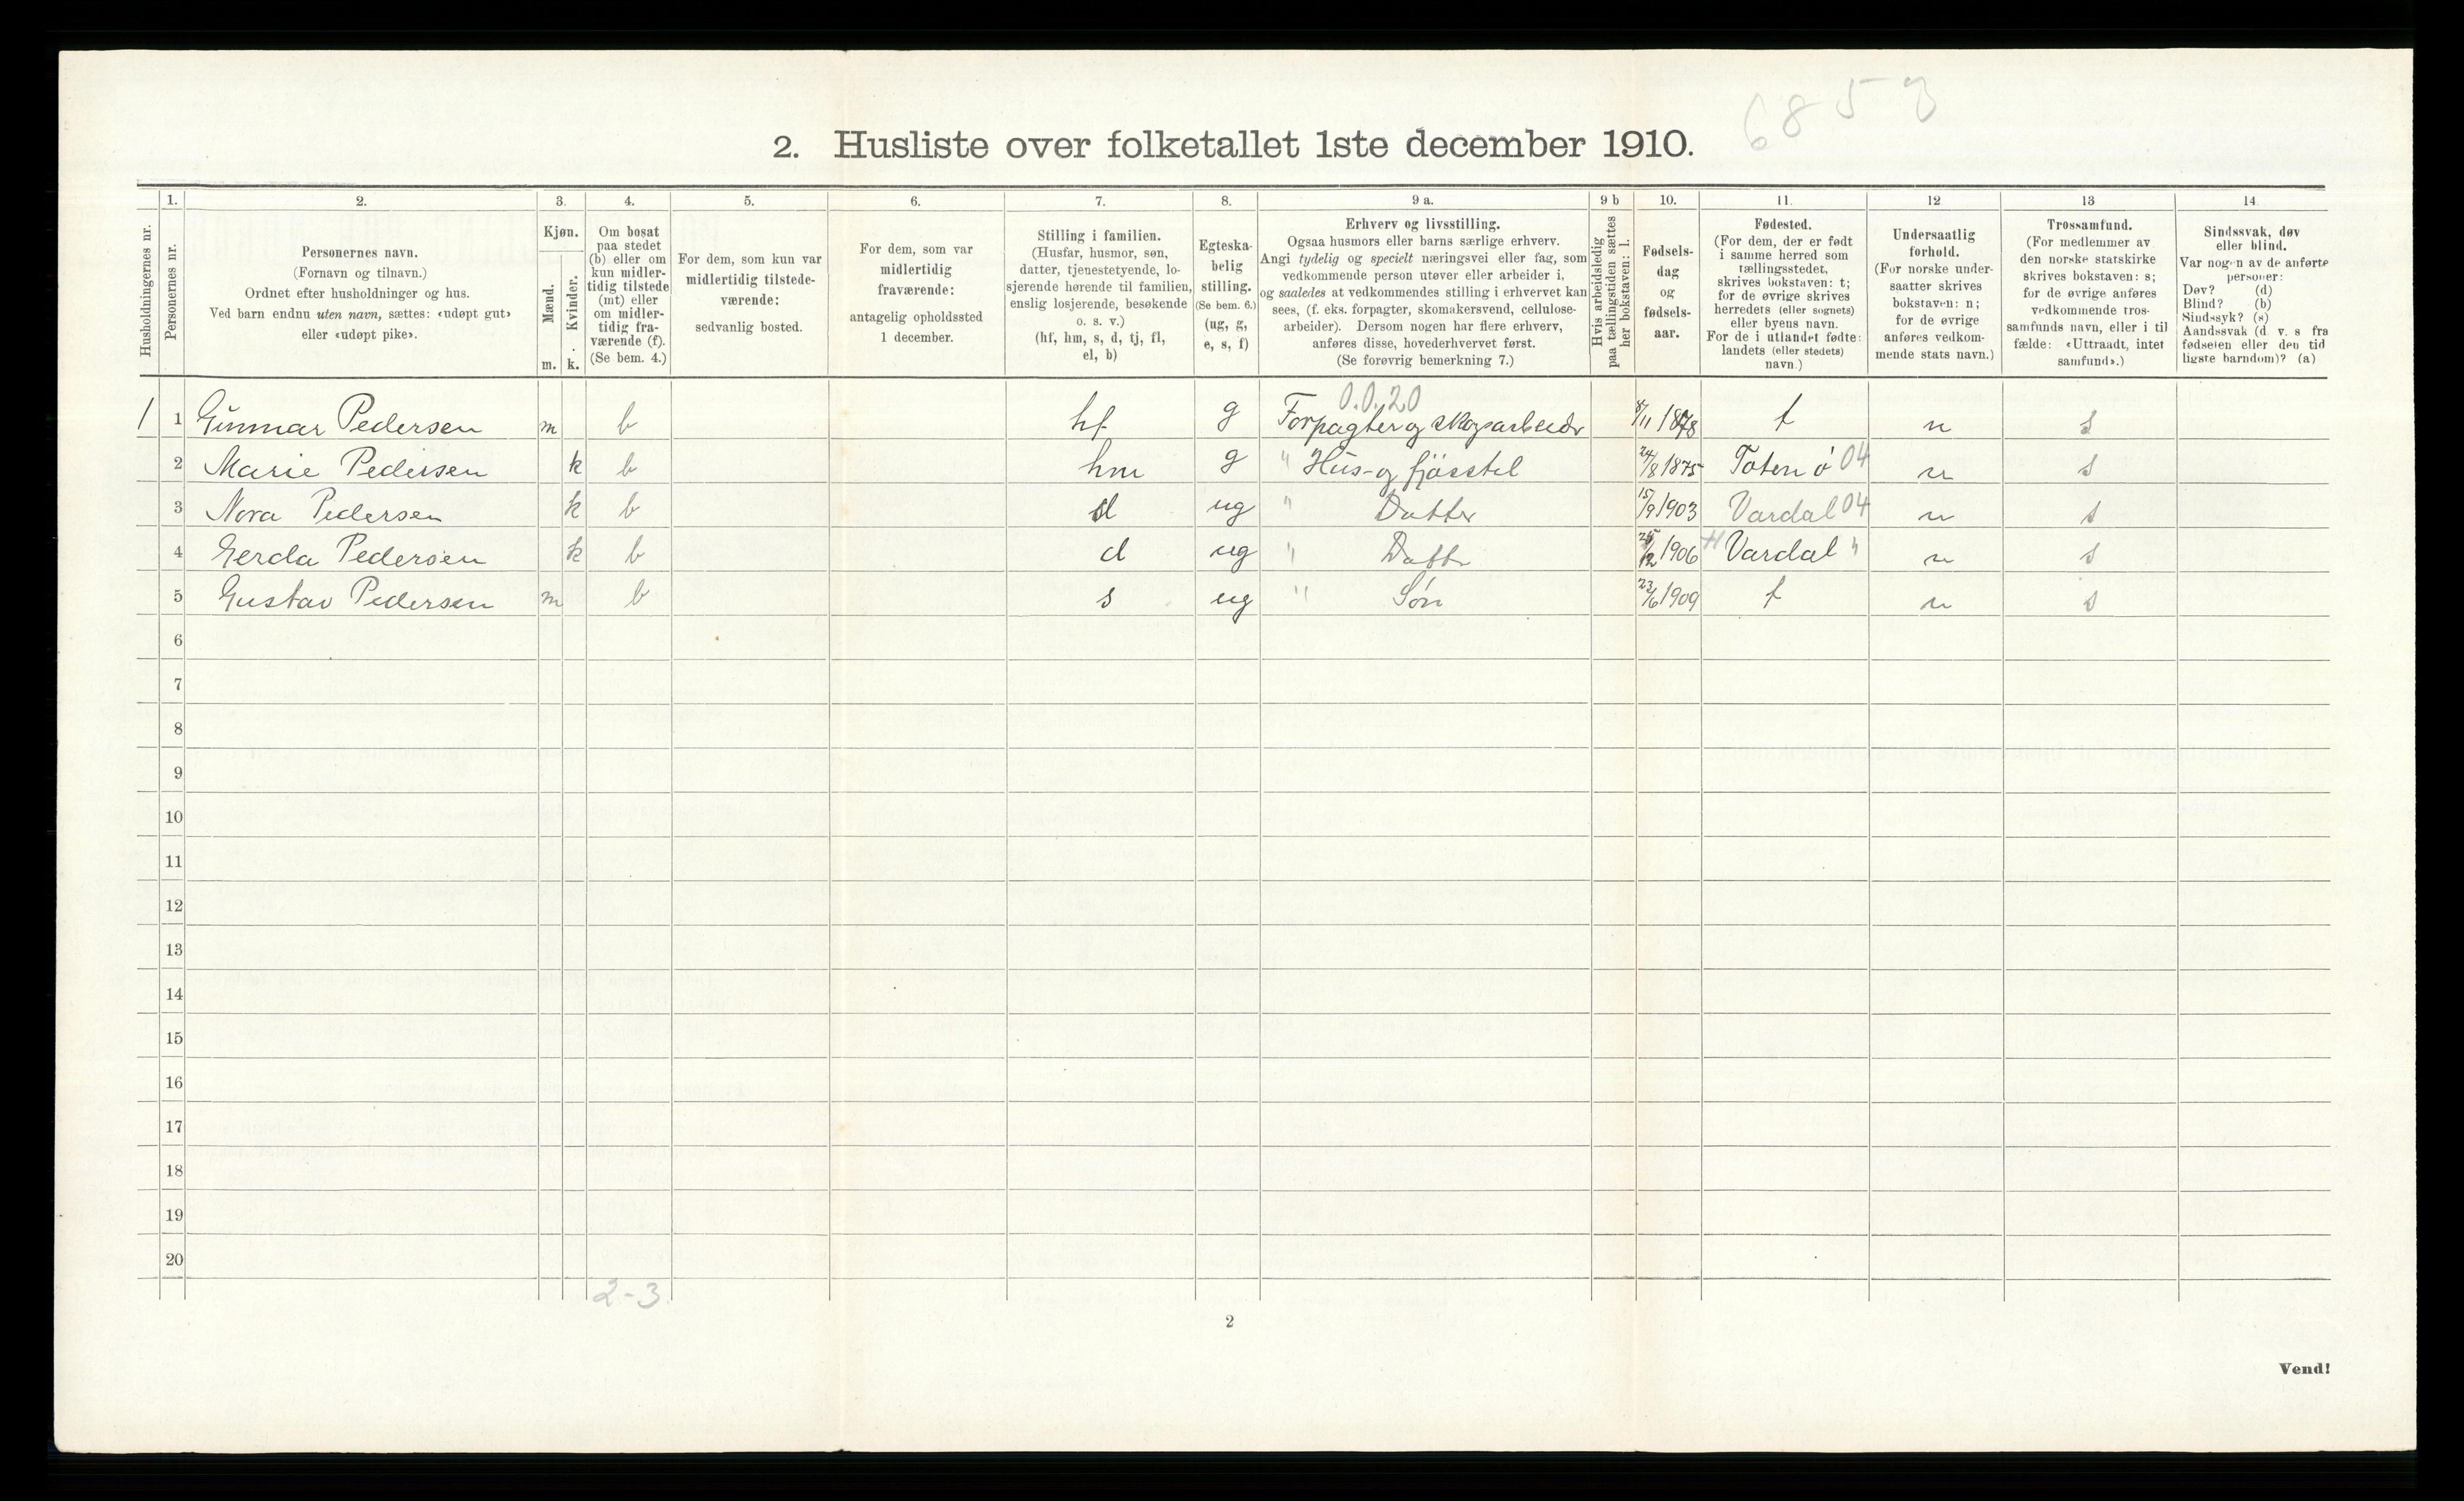 6853
2. Husliste over folketallet 1ste december 1910.
Husholdningernes nr.
1.
Personernes nr.
2.
Personernes navn.
(Fornavn og tilnavn.)
Ordnet efter husholdninger og hus.
Ved barn endnu uten navn, sættes: «udøpt gut»
eller «udøpt pike».
3.
Kjøn.
Mænd.
m.
Kvinder.
k.
4.
Om bosat
paa stedet
(b) eller om
kun midler-
tidig tilstede
(mt) eller
om midler-
tidig fra-
værende (f).
(Se bem. 4.)
5.
For dem, som kun var
midlertidig tilstede-
værende:
sedvanlig bosted.
6.
For dem, som var
midlertidig
fraværende:
antagelig opholdssted
1 december.
7.
Stilling i familien.
(Husfar, husmor, søn,
datter, tjenestetyende, lo-
sjerende hørende til familien,
enslig losjerende, besøkende
o. s. v.)
(hf, hm, s, d, tj, fl,
el, b)
8.
Egteska-
belig
stilling.
(Se bem. 6.)
(ug, g,
e, s, f)
9 a.
Erhverv og livsstilling.
Ogsaa husmors eller barns særlige erhverv.
Angi tydelig og specielt næringsvei eller fag, som
vedkommende person utøver eller arbeider i,
og saaledes at vedkommendes stilling i erhvervet kan
sees, (f. eks. forpagter, skomakersvend, cellulose-
arbeider). Dersom nogen har flere erhverv,
anføres disse, hovederhvervet først.
(Se forøvrig bemerkning 7.)
9 b
Hvis arbeidsledig
paa tællingstiden sættes
her bokstaven: l.
10.
Fødsels-
dag
og
fødsels-
aar.
11.
Fødested.
(For dem, der er født
i samme herred som
tællingsstedet,
skrives bokstaven: t;
for de øvrige skrives
herredets (eller sognets)
eller byens navn.
For de i utlandet fødte:
landets (eller stedets)
navn.)
12
Undersaatlig
forhold.
(For norske under-
saatter skrives
bokstaven: n;
for de øvrige
anføres vedkom-
mende stats navn.)
13
Trossamfund.
(For medlemmer av
den norske statskirke
skrives bokstaven: s;
for de øvrige anføres
vedkommende tros-
samfunds navn, eller i til
fælde: «Uttraadt, intet
samfund».)
14
Sindssvak, døv
eller blind.
Var nogen av de anførte
personer:
Døv? (d)
Blind? (b)
Sindssyk? (s)
Aandssvak (d v. s fra
fødselen eller den tid
ligste barndom)? (a)
0.0.20
1 1 Gunnar Pedersen m b hf g Forpagter og skogsarbeider 8/11 1878 t n s
2 Marie Pedersen k b hm g " Hus- og fjösstel 24/8 1875 Toten ö 04 n s
3 Nora Pedersen k b d ug " Datter 15/9 1903 Vardal 04 n s
4 Gerda Pedersen k b d ug " Dattr 1906 Vardal " n s
5 Gustav Pedersen m b s ug " Søn 23/6 1909 t n s
6
7
8
9
10
11
12
13
14
15
16
17
18
19
20
2-3
2
Vend!